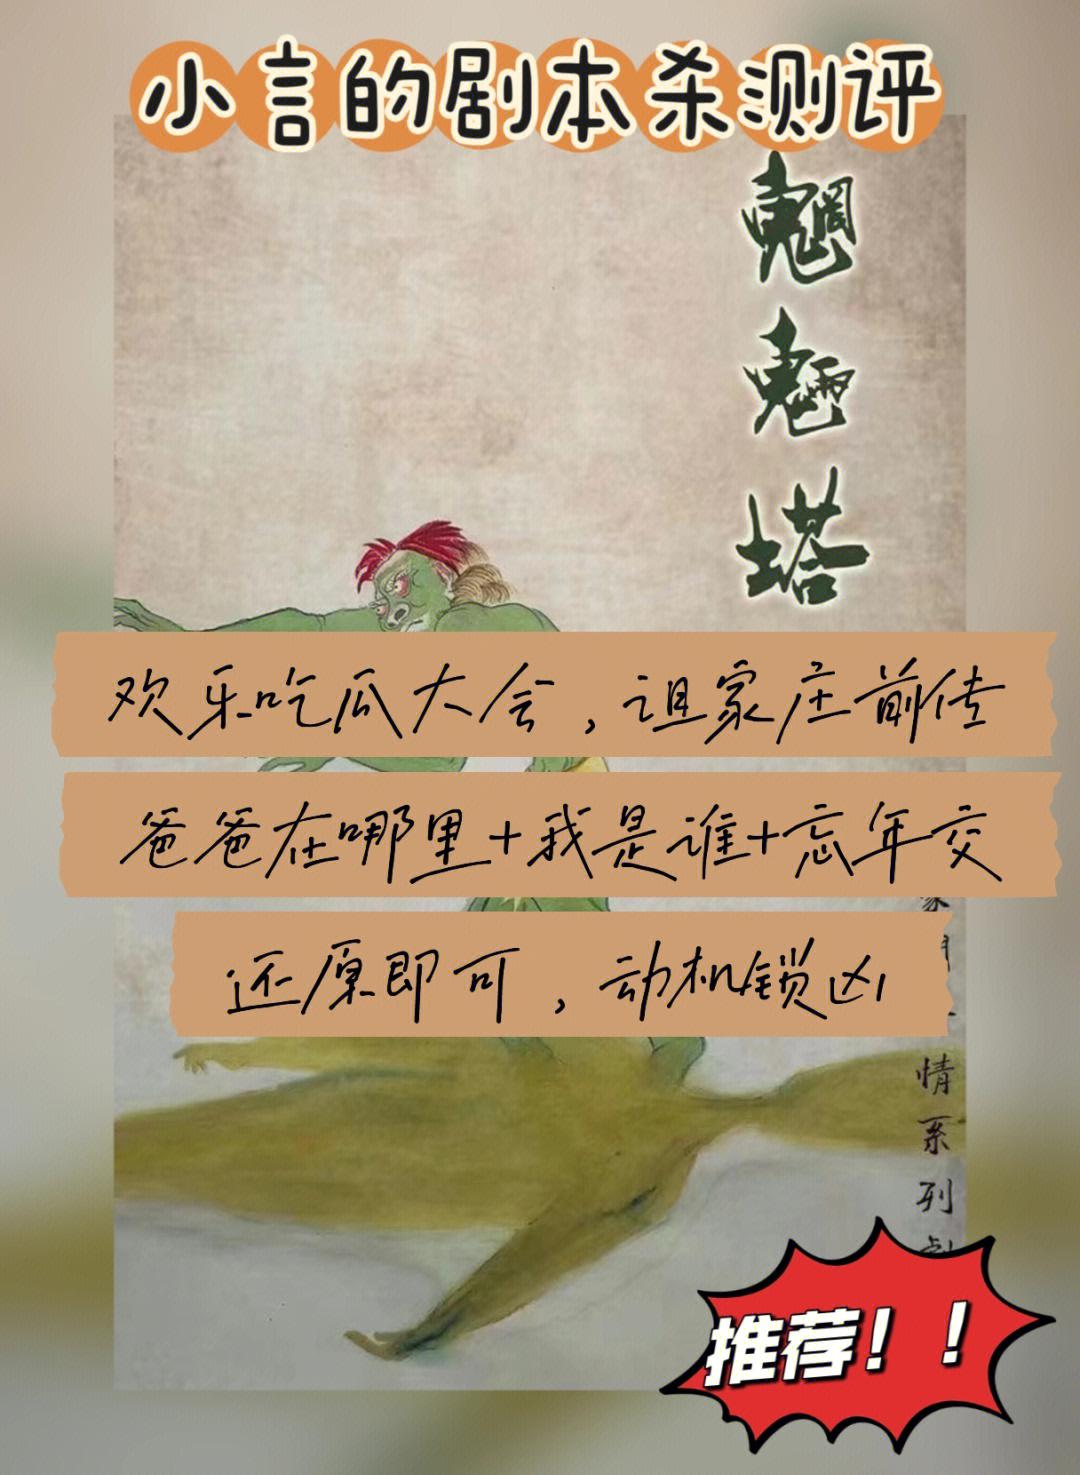 小言的剧本杀测评
魍魉塔
欢乐吃瓜大会，诅家庄前传
爸爸在哪里+我是谁+忘年交
还原即可，动机锁凶
情系列
推荐！！